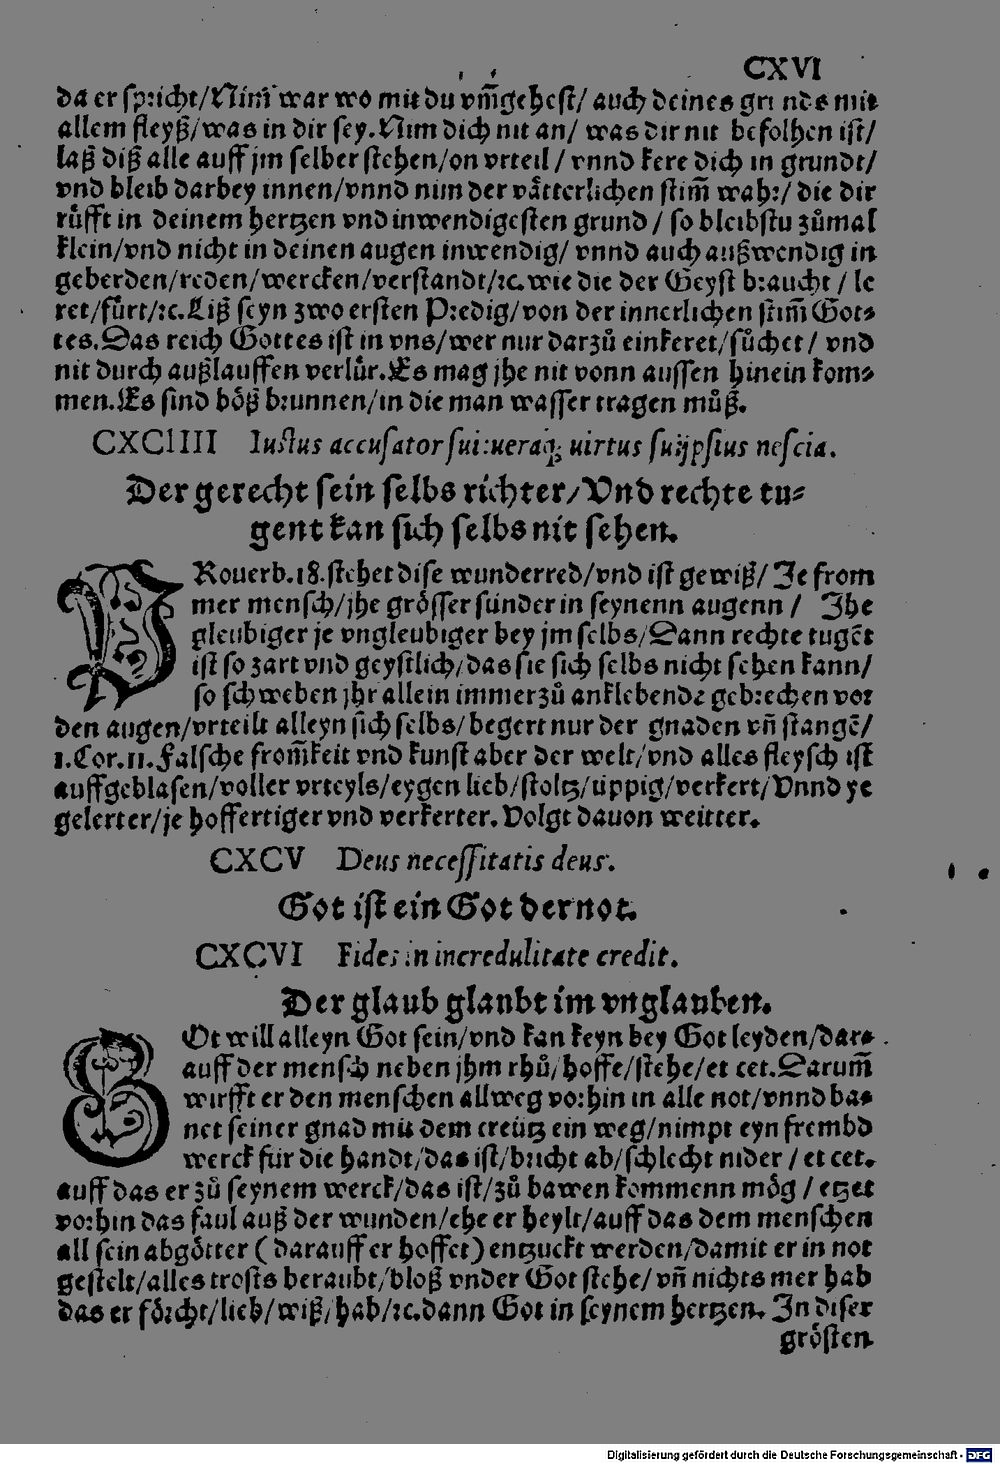 CXVI
da er spricht/Nim̃ war wo mit du vm̃gehest/ auch deines grundes mit
allem fleyß/was in dir sey. Nim dich nit an/ was dir nit befolhen ist/
laß diß alle auff jm selber stehen/on vrteil/ vnnd kere dich in grundt/
vnd bleib darbey innen/vnnd nim der vätterlichen stim̃ wahr/ die dir
rüfft in deinem hertzen vnd inwendigesten grund / so bleibstu zůmal
klein/vnd nicht in deinen augen inwendig/ vnnd auch außwendig in
geberden/reden/wercken/verstandt/ꝛc. wie die der Geyst braucht / le
ret/fürt/ꝛc. Liß seyn zwo ersten Predig/von der innerlichen stim̃ Got⸗
tes. Das reich Gottes ist in vns/wer nur darzů einkeret/sůchet/ vnd
nit durch außlauffen verlür. Es mag jhe nit vonn aussen hinein kom⸗
men. Es sind böß brunnen/in die man wasser tragen můß.
CXCIIII Iustus accusator sui: ueraq́ue uirtus suijpsius nescia.
Der gerecht sein selbs richter/Vnd rechte tu⸗
gent kan sich selbs nit sehen.
PRouerb.18.stehet dise wunderred/vnd ist gewiß/ Je from
mer mensch/jhe grösser sünder in seynenn augenn / Jhe
gleubiger je vngleubiger bey jm selbs/Dann rechte tugẽt
ist so zart vnd geystlich/das sie sich selbs nicht sehen kann/
so schweben jhr allein immerzů anklebende gebrechen vor
den augen/vrteilt alleyn sich selbs/ begert nur der gnaden vñ stangẽ/
1.Cor.11. Falsche from̃keit vnd kunst aber der welt/vnd alles fleysch ist
auffgeblasen/voller vrteyls/eygen lieb/stoltz/üppig/verkert/Vnnd ye
gelerter/je hoffertiger vnd verkerter. Volgt dauon weitter.
CXCV Deus necessitatis deus.
Got ist ein Got der not.
CXCVI Fides in incredulitate credit.
Der glaub glaubt im vnglauben.
GOt will alleyn Got sein/vnd kan keyn bey Got leyden/dar⸗
auff der mensch neben jhm rhů/hoffe/stehe/et cet. Darum̃
wirfft er den menschen allweg vorhin in alle not/vnnd ba⸗
net seiner gnad mit dem creütz ein weg/nimpt eyn frembd
werck für die handt/das ist/bricht ab/schlecht nider / et cet.
auff das er zů seynem werck/das ist/zů bawen kommenn mög / etzet
vorhin das faul auß der wunden/ehe er heylt/auff das dem menschen
all sein abgötter ( darauff er hoffet) entzuckt werden/damit er in not
gestelt/alles trosts beraubt/bloß vnder Got stehe/vñ nichts mer hab
das er förcht/lieb/wiß/hab/ꝛc. dann Got in seynem hertzen. In diser
grösten
Digitalisierung gefördert durch die Deutsche Forschungsgemeinschaft - DFG